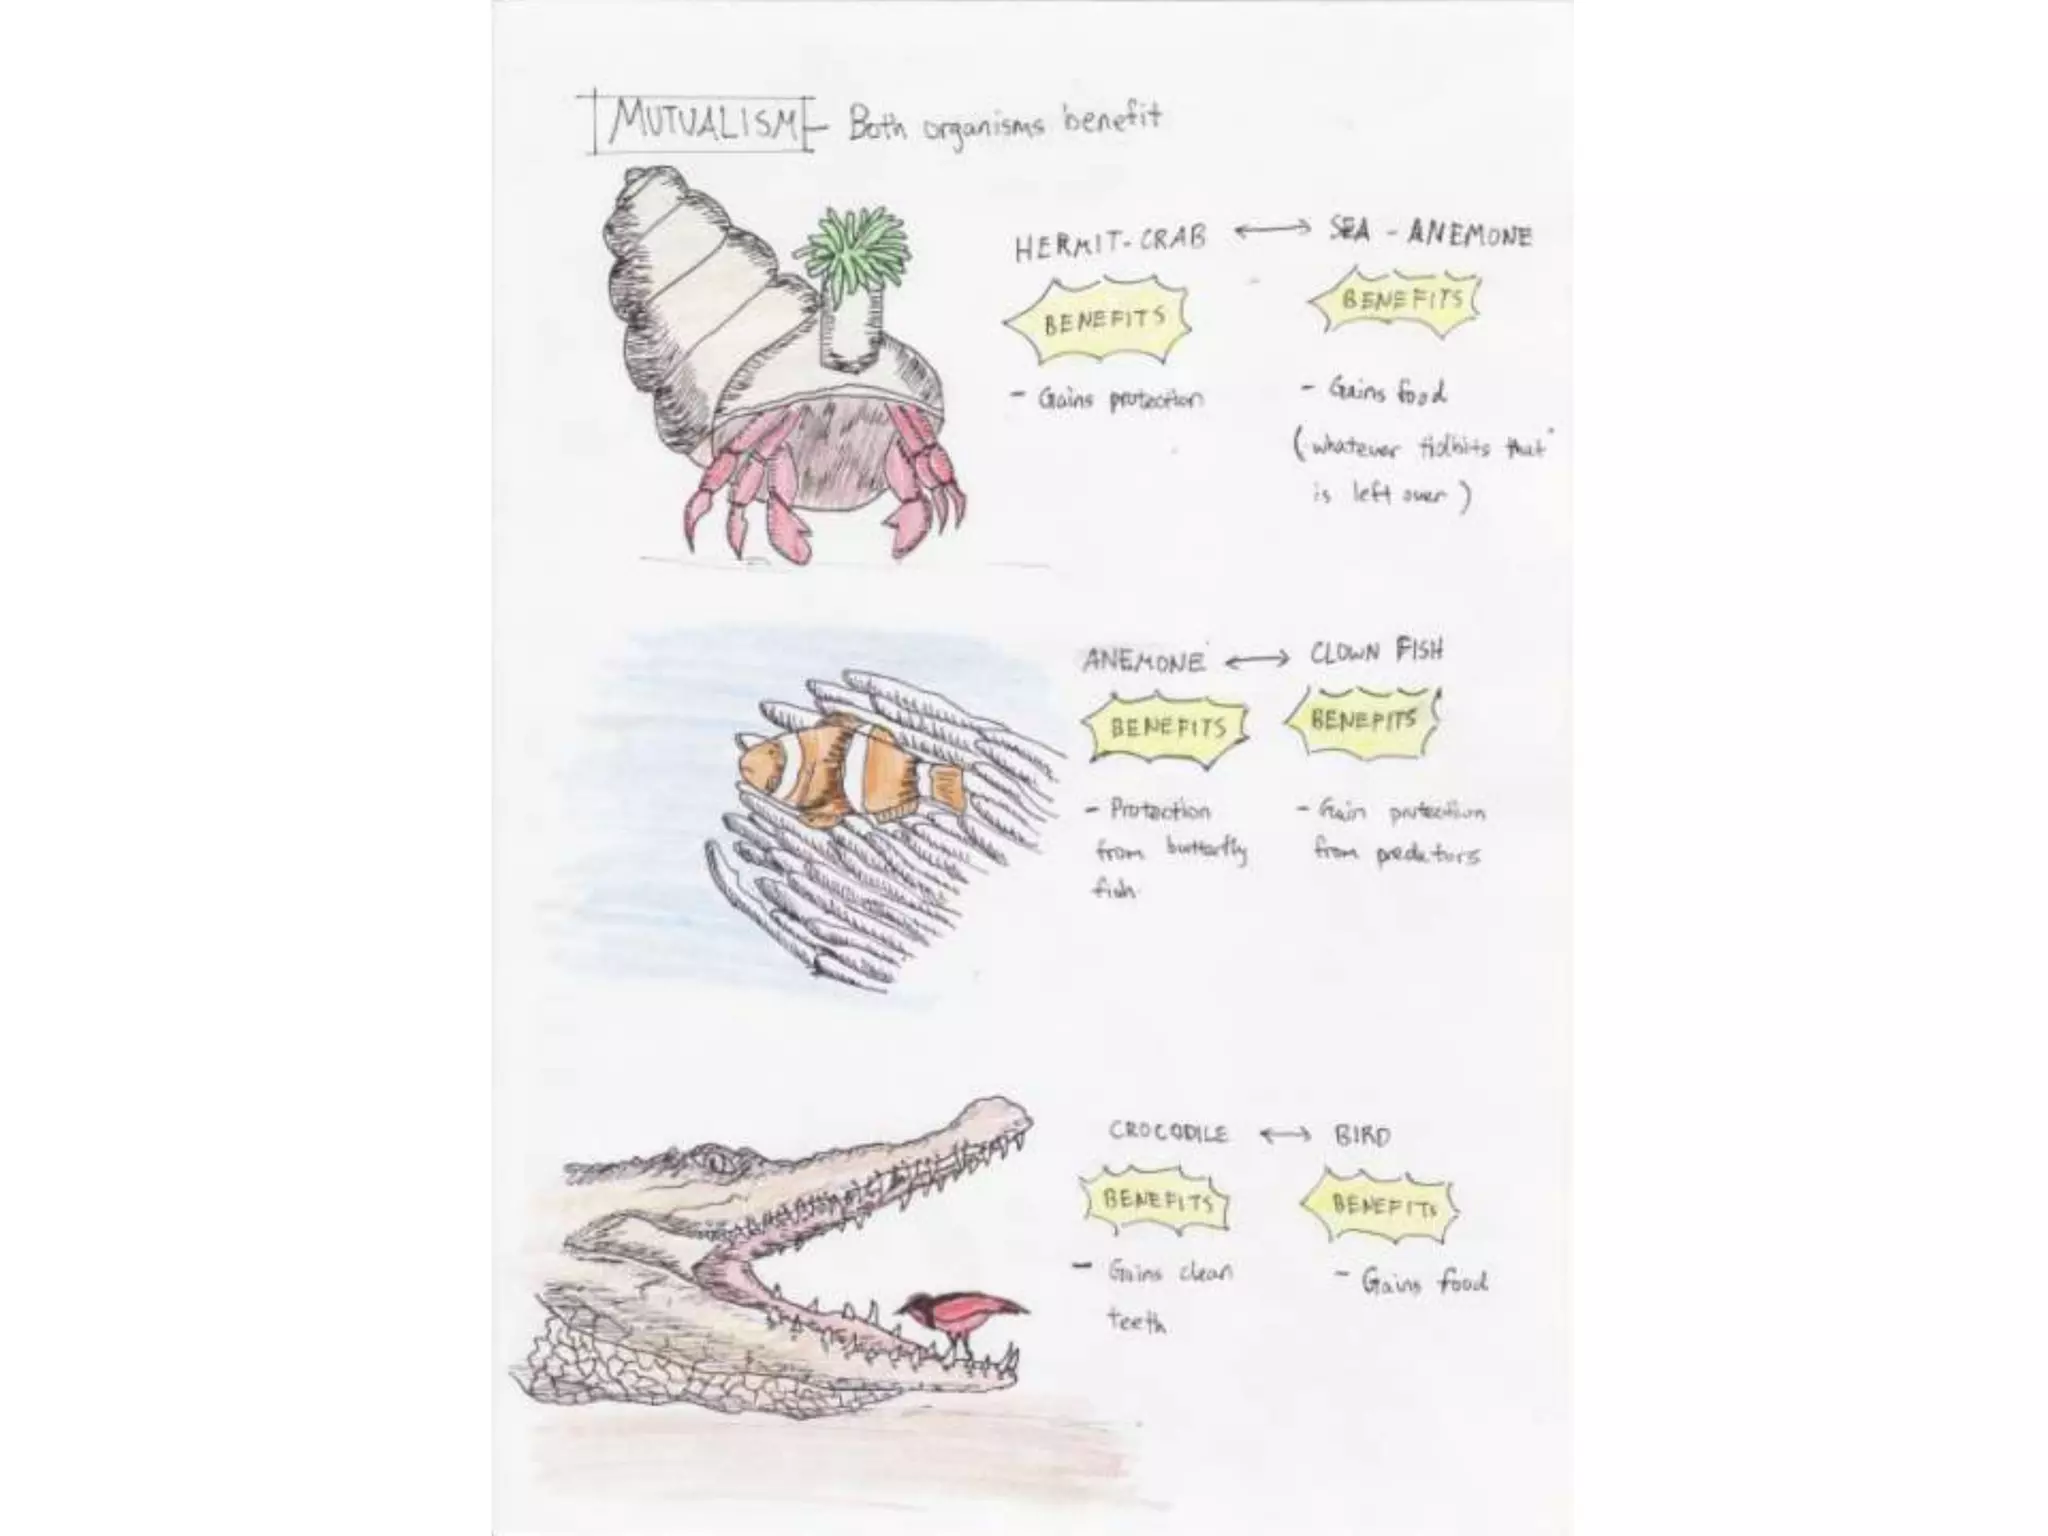 MUTUALISM - Both organisms benefit
HERMIT-CRAB ↔ SEA - ANEMONE
BENEFITS
BENEFITS
- Gains protection
- Gains food
(whatever tidbits that
is left over)
ANEMONE ↔ CLOWN FISH
BENEFITS
BENEFITS
- Protection
from butterfly
fish
- Gain protection
from predators
CROCODILE ↔ BIRD
BENEFITS
BENEFITS
- Gains clean
teeth
- Gains food